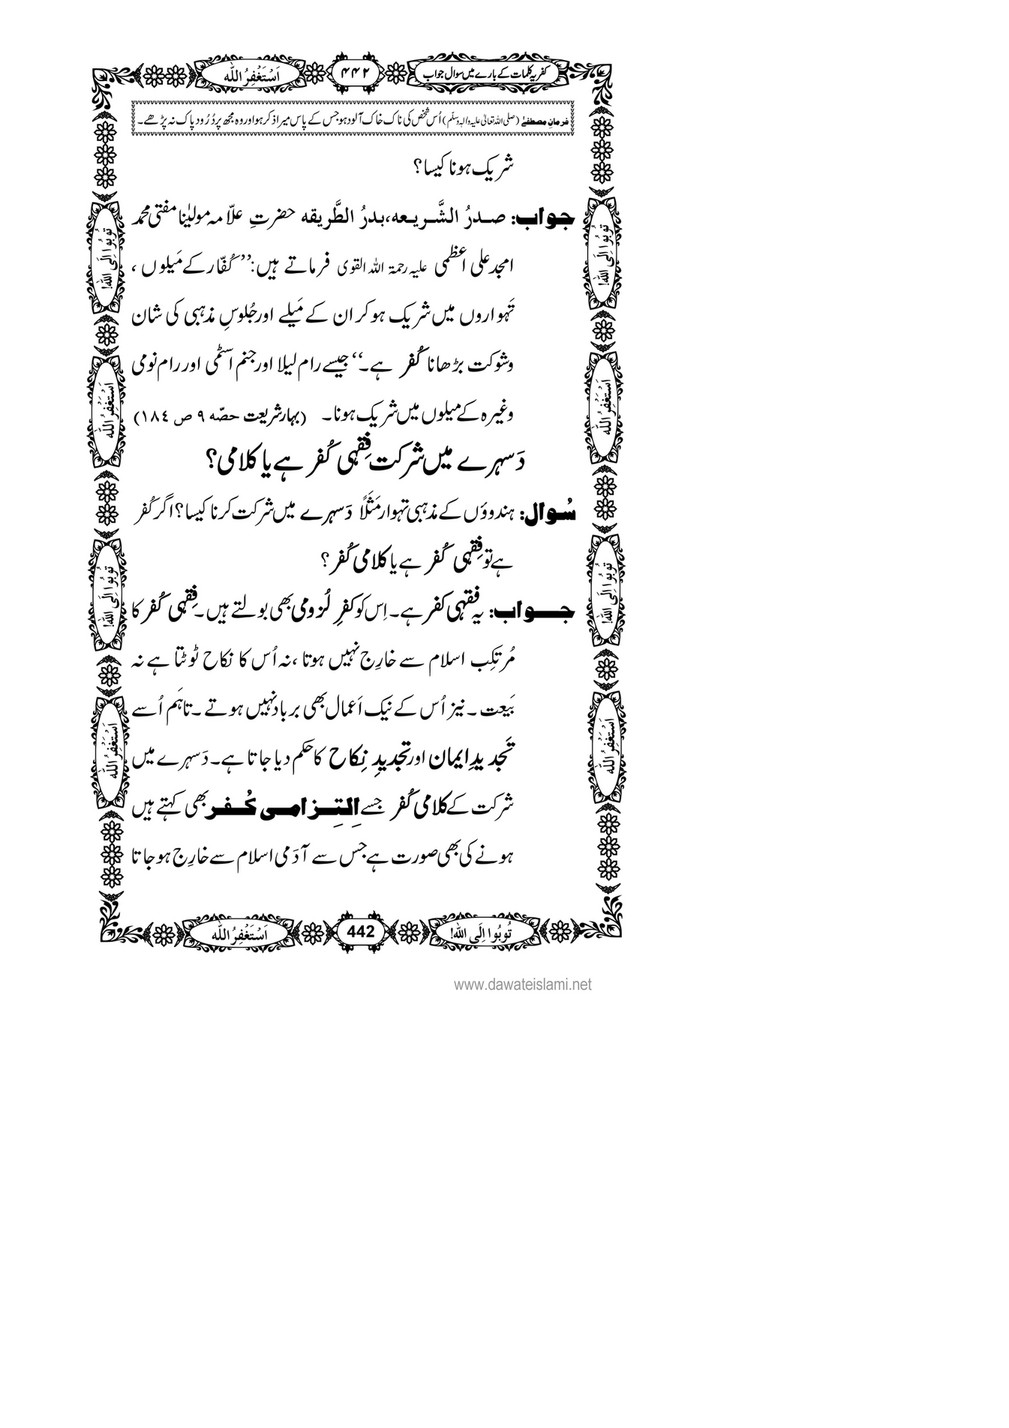 کفریہ کلمات کے بارے میں سوال جواب
۴۴۲
اَسْتَغْفِرُ اللّٰه
فرمانِ مصطفےٰ (صلی اللہ تعالیٰ علیہ والہ وسلم) اُس شخص کی ناک خاک آلود ہو جس کے پاس میرا ذکر ہو اور وہ مجھ پر دُرُود پاک نہ پڑھے۔
شریک ہونا کیسا؟
جواب: صدرُ الشَّریعہ،بدرُ الطَّریقہ حضرتِ علّامہ مولیٰنا مفتی محمد
امجد علی اعظمی علیہ رحمۃ اللہ القوی فرماتے ہیں:’’کُفّار کے مَیلوں ،
تَہواروں میں شریک ہو کر ان کے مَیلے اور جُلوسِ مذہبی کی شان
و شوکت بڑھانا کُفر ہے۔‘‘ جیسے رام لیلا اور جنم اسٹمی اور رام نومی
وغیرہ کے میلوں میں شریک ہونا۔ (بہار شریعت حصّہ ۹ ص ۱۸٤)
دَسہرے میں شرکت فِقہی کُفر ہے یا کلامی؟
سُوال: ہندوؤں کے مذہبی تہوار مَثَلاً دَسہرے میں شرکت کرنا کیسا؟ اگر کُفر
ہے تو فِقہی کُفر ہے یا کلامی کُفر؟
جواب: یہ فقہی کفر ہے۔ اِس کو کفرِ لُزومی بھی بولتے ہیں۔ فِقہی کُفر کا
مُرتکِب اسلام سے خارِج نہیں ہوتا ،نہ اُس کا نکاح ٹوٹتا ہے نہ
بَیعت۔ نیز اُس کے نیک اَعمال بھی برباد نہیں ہوتے ۔ تاہَم اُسے
تَجدیدِ ایمان اور تجدیدِ نِکاح کا حکم دیا جاتا ہے۔ دَسہرے میں
شرکت کے کلامی کُفر جسے اِلتِزامی کُفر بھی کہتے ہیں
ہونے کی بھی صورت ہے جس سے آدَمی اسلام سے خارِج ہو جاتا
تُوبُوا اِلَی اللّٰه!
اَسْتَغْفِرُ اللّٰه
تُوبُوا اِلَی اللّٰه!
اَسْتَغْفِرُ اللّٰه
تُوبُوا اِلَی اللّٰه!
اَسْتَغْفِرُ اللّٰه
تُوبُوا اِلَی اللّٰه!
اَسْتَغْفِرُ اللّٰه
تُوبُوا اِلَی اللّٰه!
442
اَسْتَغْفِرُ اللّٰه
www.dawateislami.net